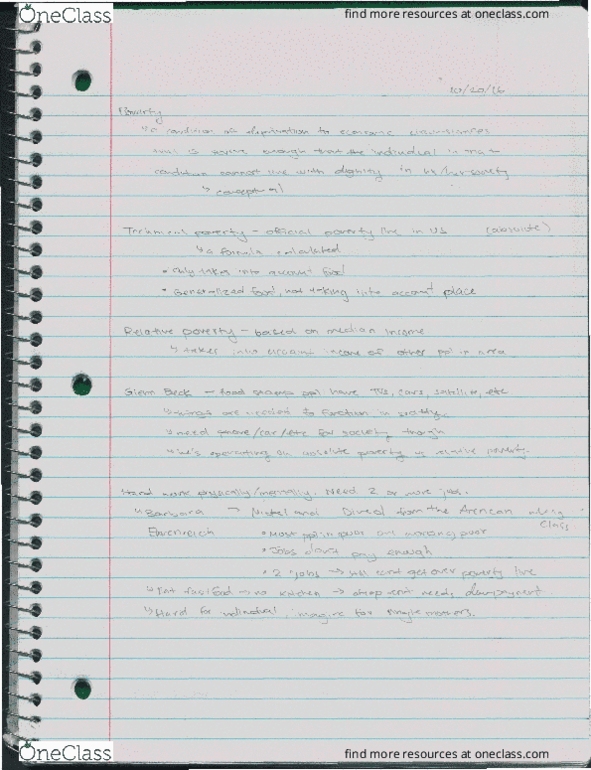 OneClass
find more resources at oneclass.com
10/20/16
Poverty
↳ a condition of deprivation to economic circumstances
that is severe enough that the individual in
condition cannot live with dignity in his/her society
↳ conceptual
poverty - official poverty line in US (absolute)
↳ a formula calculated
• Only takes into account food
• Generalized food, not taking into account place
Relative poverty - based on median income
↳ takes into account income of other ppl in area
Glenn Beck - food stamps ppl have TVs, cars, etc
↳ things are needed to function in society
↳ need phone/car/etc for society though
↳ he's operating on absolute poverty vs relative poverty.
Hard work physically/mentally. Need 2 or more jobs.
↳ Barbara → Nickel and Dimed from the American
Class
Ehrenreich • Most ppl in poor are working poor
• Jobs don't pay enough
• 2 jobs → still can't get over poverty line
↳ Eat fastfood → no kitchen → needs downpayment
↳ Hard for individual, imagine for single mothers.
OneClass
find more resources at oneclass.com